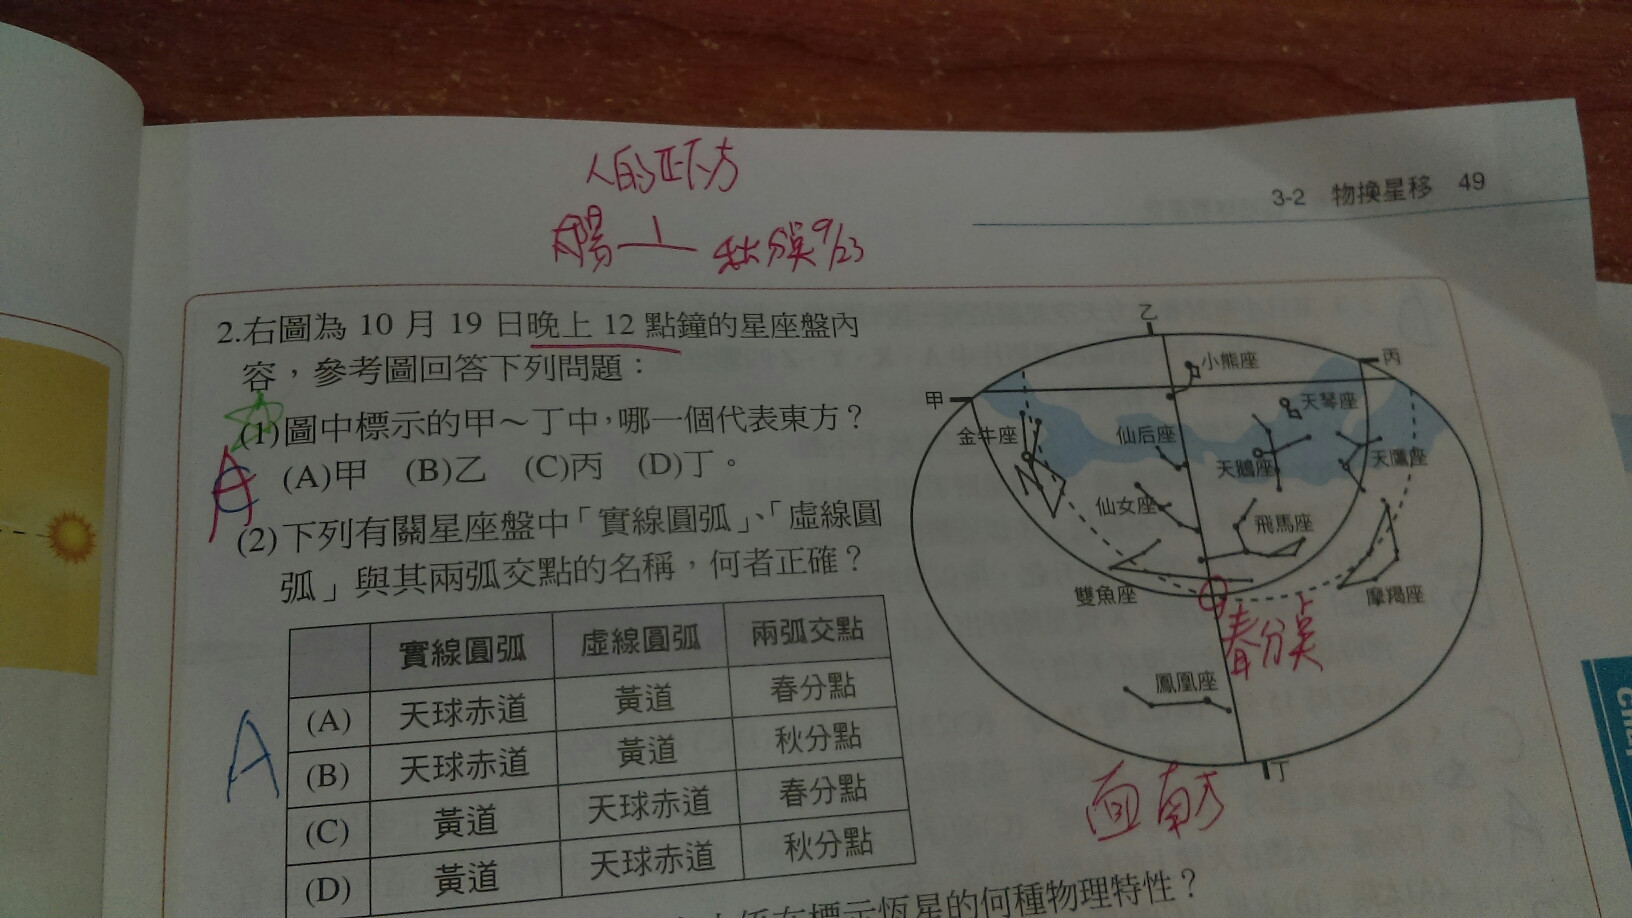 人的正下方
太陽 秋分點9/23
3-2 物換星移 49
2.右圖為 10 月 19 日晚上 12 點鐘的星座盤內
容，參考圖回答下列問題：
(1)圖中標示的甲～丁中，哪一個代表東方？
A
(A)甲 (B)乙 (C)丙 (D)丁。
(2)下列有關星座盤中「實線圓弧」、「虛線圓
弧」與其兩弧交點的名稱，何者正確？
A
實線圓弧 虛線圓弧 兩弧交點
(A) 天球赤道 黃道 春分點
(B) 天球赤道 黃道 秋分點
(C) 黃道 天球赤道 春分點
(D) 黃道 天球赤道 秋分點
恆星的何種物理特性？
乙
小熊座
丙
甲
天琴座
金牛座
仙后座
天鵝座
天鷹座
仙女座
飛馬座
雙魚座
摩羯座
春分點
鳳凰座
丁
面南方